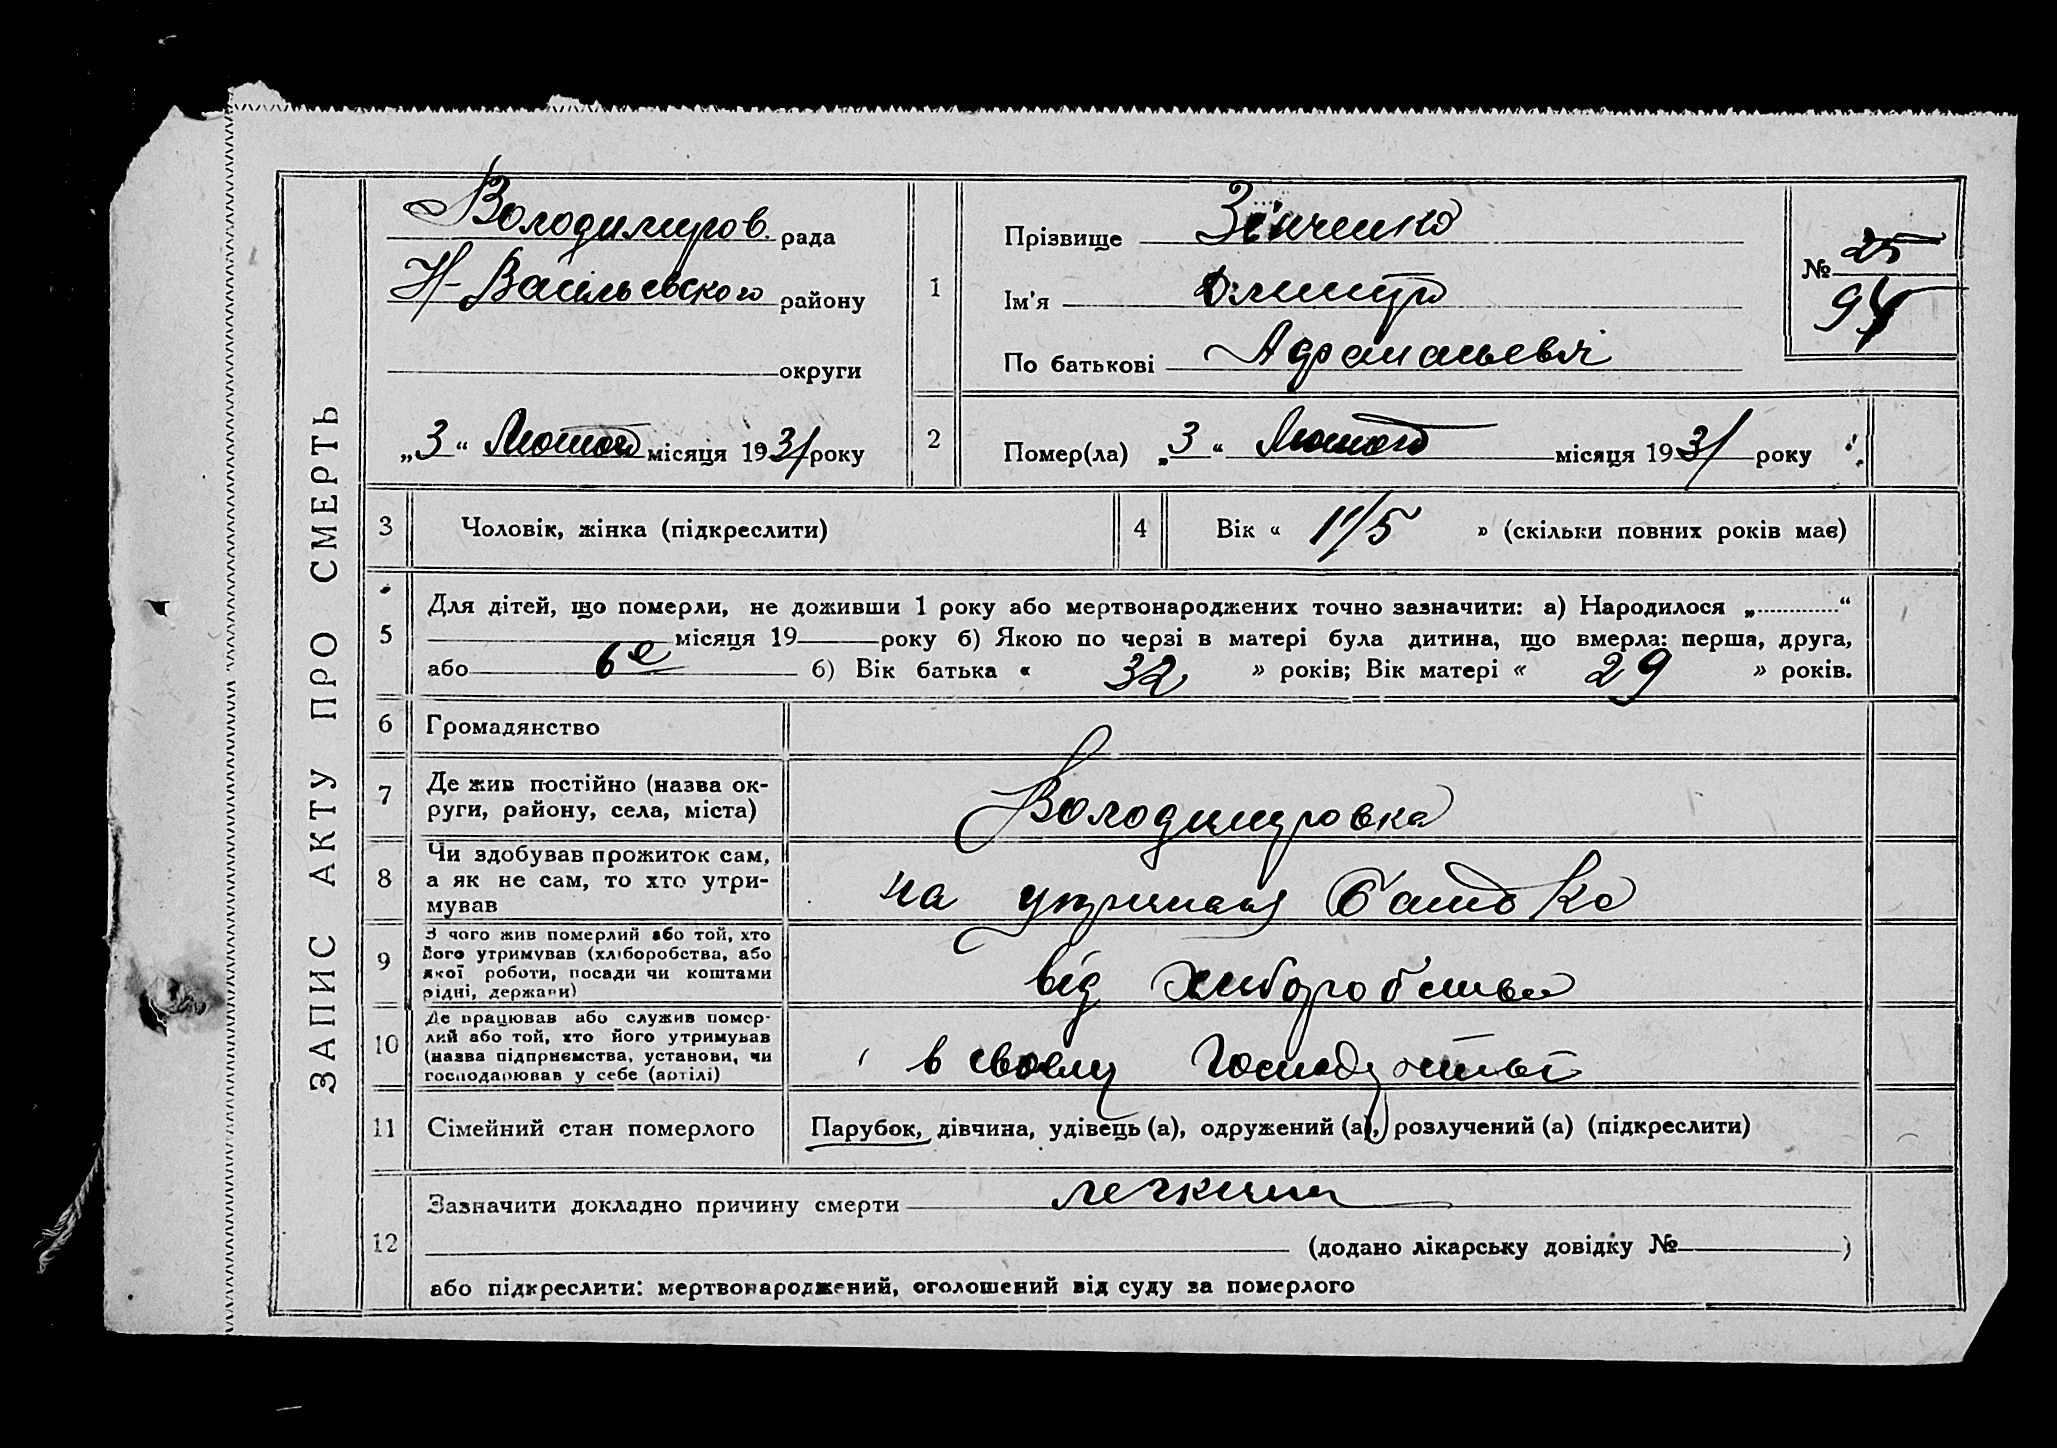 ЗАПИС АКТУ ПРО СМЕРТЬ
Володимиров. рада
Н-Васильевского району
округи
„3“ Лютого місяця 1931 року
1
Прізвище Зінченко
Ім'я Дмитро
По батькові Афанасьевіч
№ 25
94
2
Помер(ла) „3“ Лютого місяця 1931 року
3 Чоловік, жінка (підкреслити)
4 Вік « 1/5 » (скільки повних років має)
5
Для дітей, що померли, не доживши 1 року або мертвонароджених точно зазначити: а) Народилося „.............“
місяця 19 року б) Якою по черзі в матері була дитина, що вмерла: перша, друга,
або 6е б) Вік батька « 32 » років; Вік матері « 29 » років.
6 Громадянство
7
Де жив постійно (назва ок-
руги, району, села, міста)
Володимировка
8
Чи здобував прожиток сам,
а як не сам, то хто утри-
мував
на утриманя батько
9
З чого жив померлий або той, хто
його утримував (хліборобства, або
якої роботи, посади чи коштами
рідні, держави)
від хлиборобства
10
Де працював або служив помер-
лий або той, хто його утримував
(назва підприємства, установи, чи
господарював у себе (артілі)
в своему
11 Сімейний стан померлого
Парубок, дівчина, удівець (а), одружений (а), розлучений (а) (підкреслити)
12
Зазначити докладно причину смерти
(додано лікарську довідку № )
або підкреслити: мертвонароджений, оголошений від суду за померлого